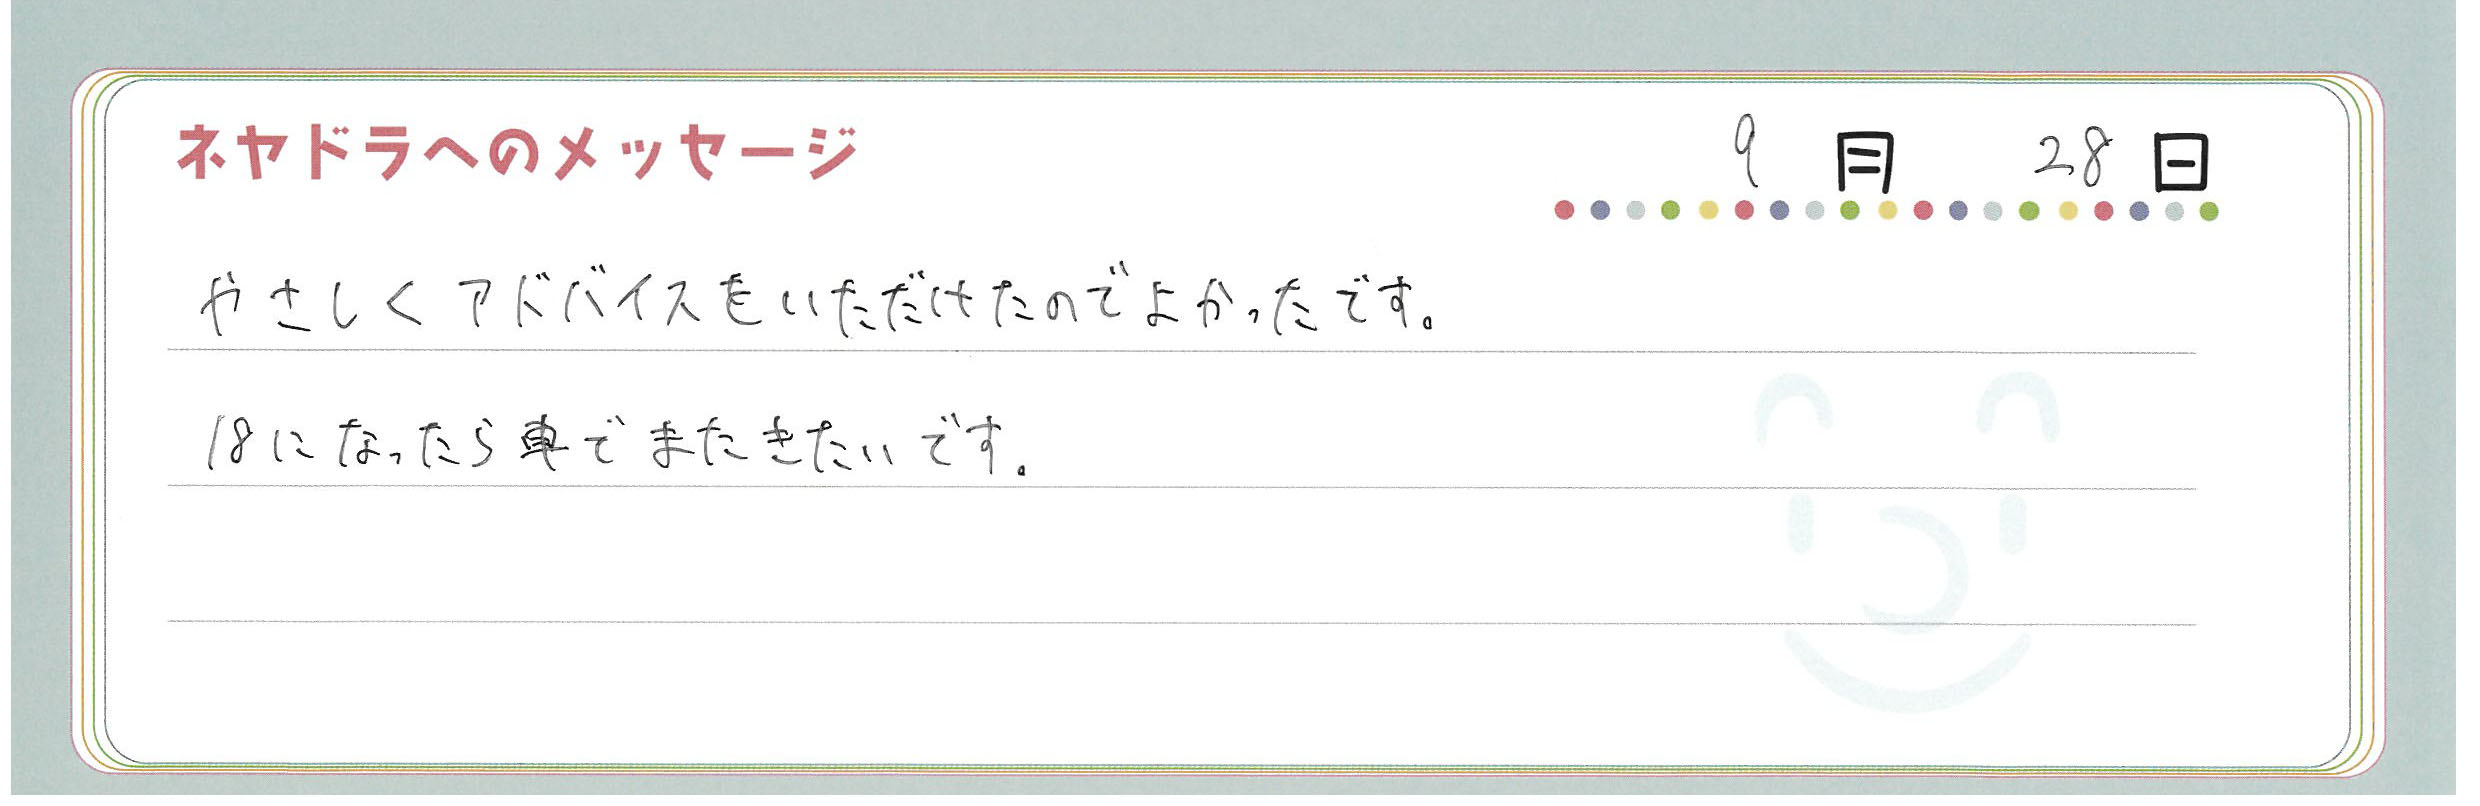 ネヤドラへのメッセージ
9月 28日
やさしくアドバイスをいただけたのでよかったです。
18になったら車でまたきたいです。